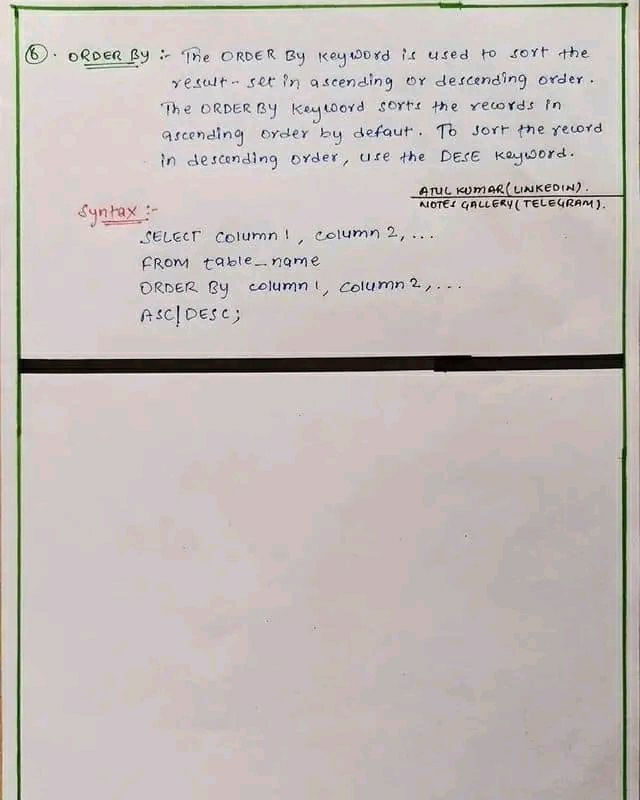 6. ORDER By :- The ORDER By keyword is used to sort the
result- set in ascending or descending order.
The ORDER By keyword sorts the records in
ascending order by defaut. To sort the record
in descending order, use the DESE keyword.
ATUL KUMAR(LINKEDIN).
NOTES GALLERY(TELEGRAM).
Syntax :-
SELECT column1, column2,...
FROM table_name
ORDER By column1, column2,...
ASC|DESC;